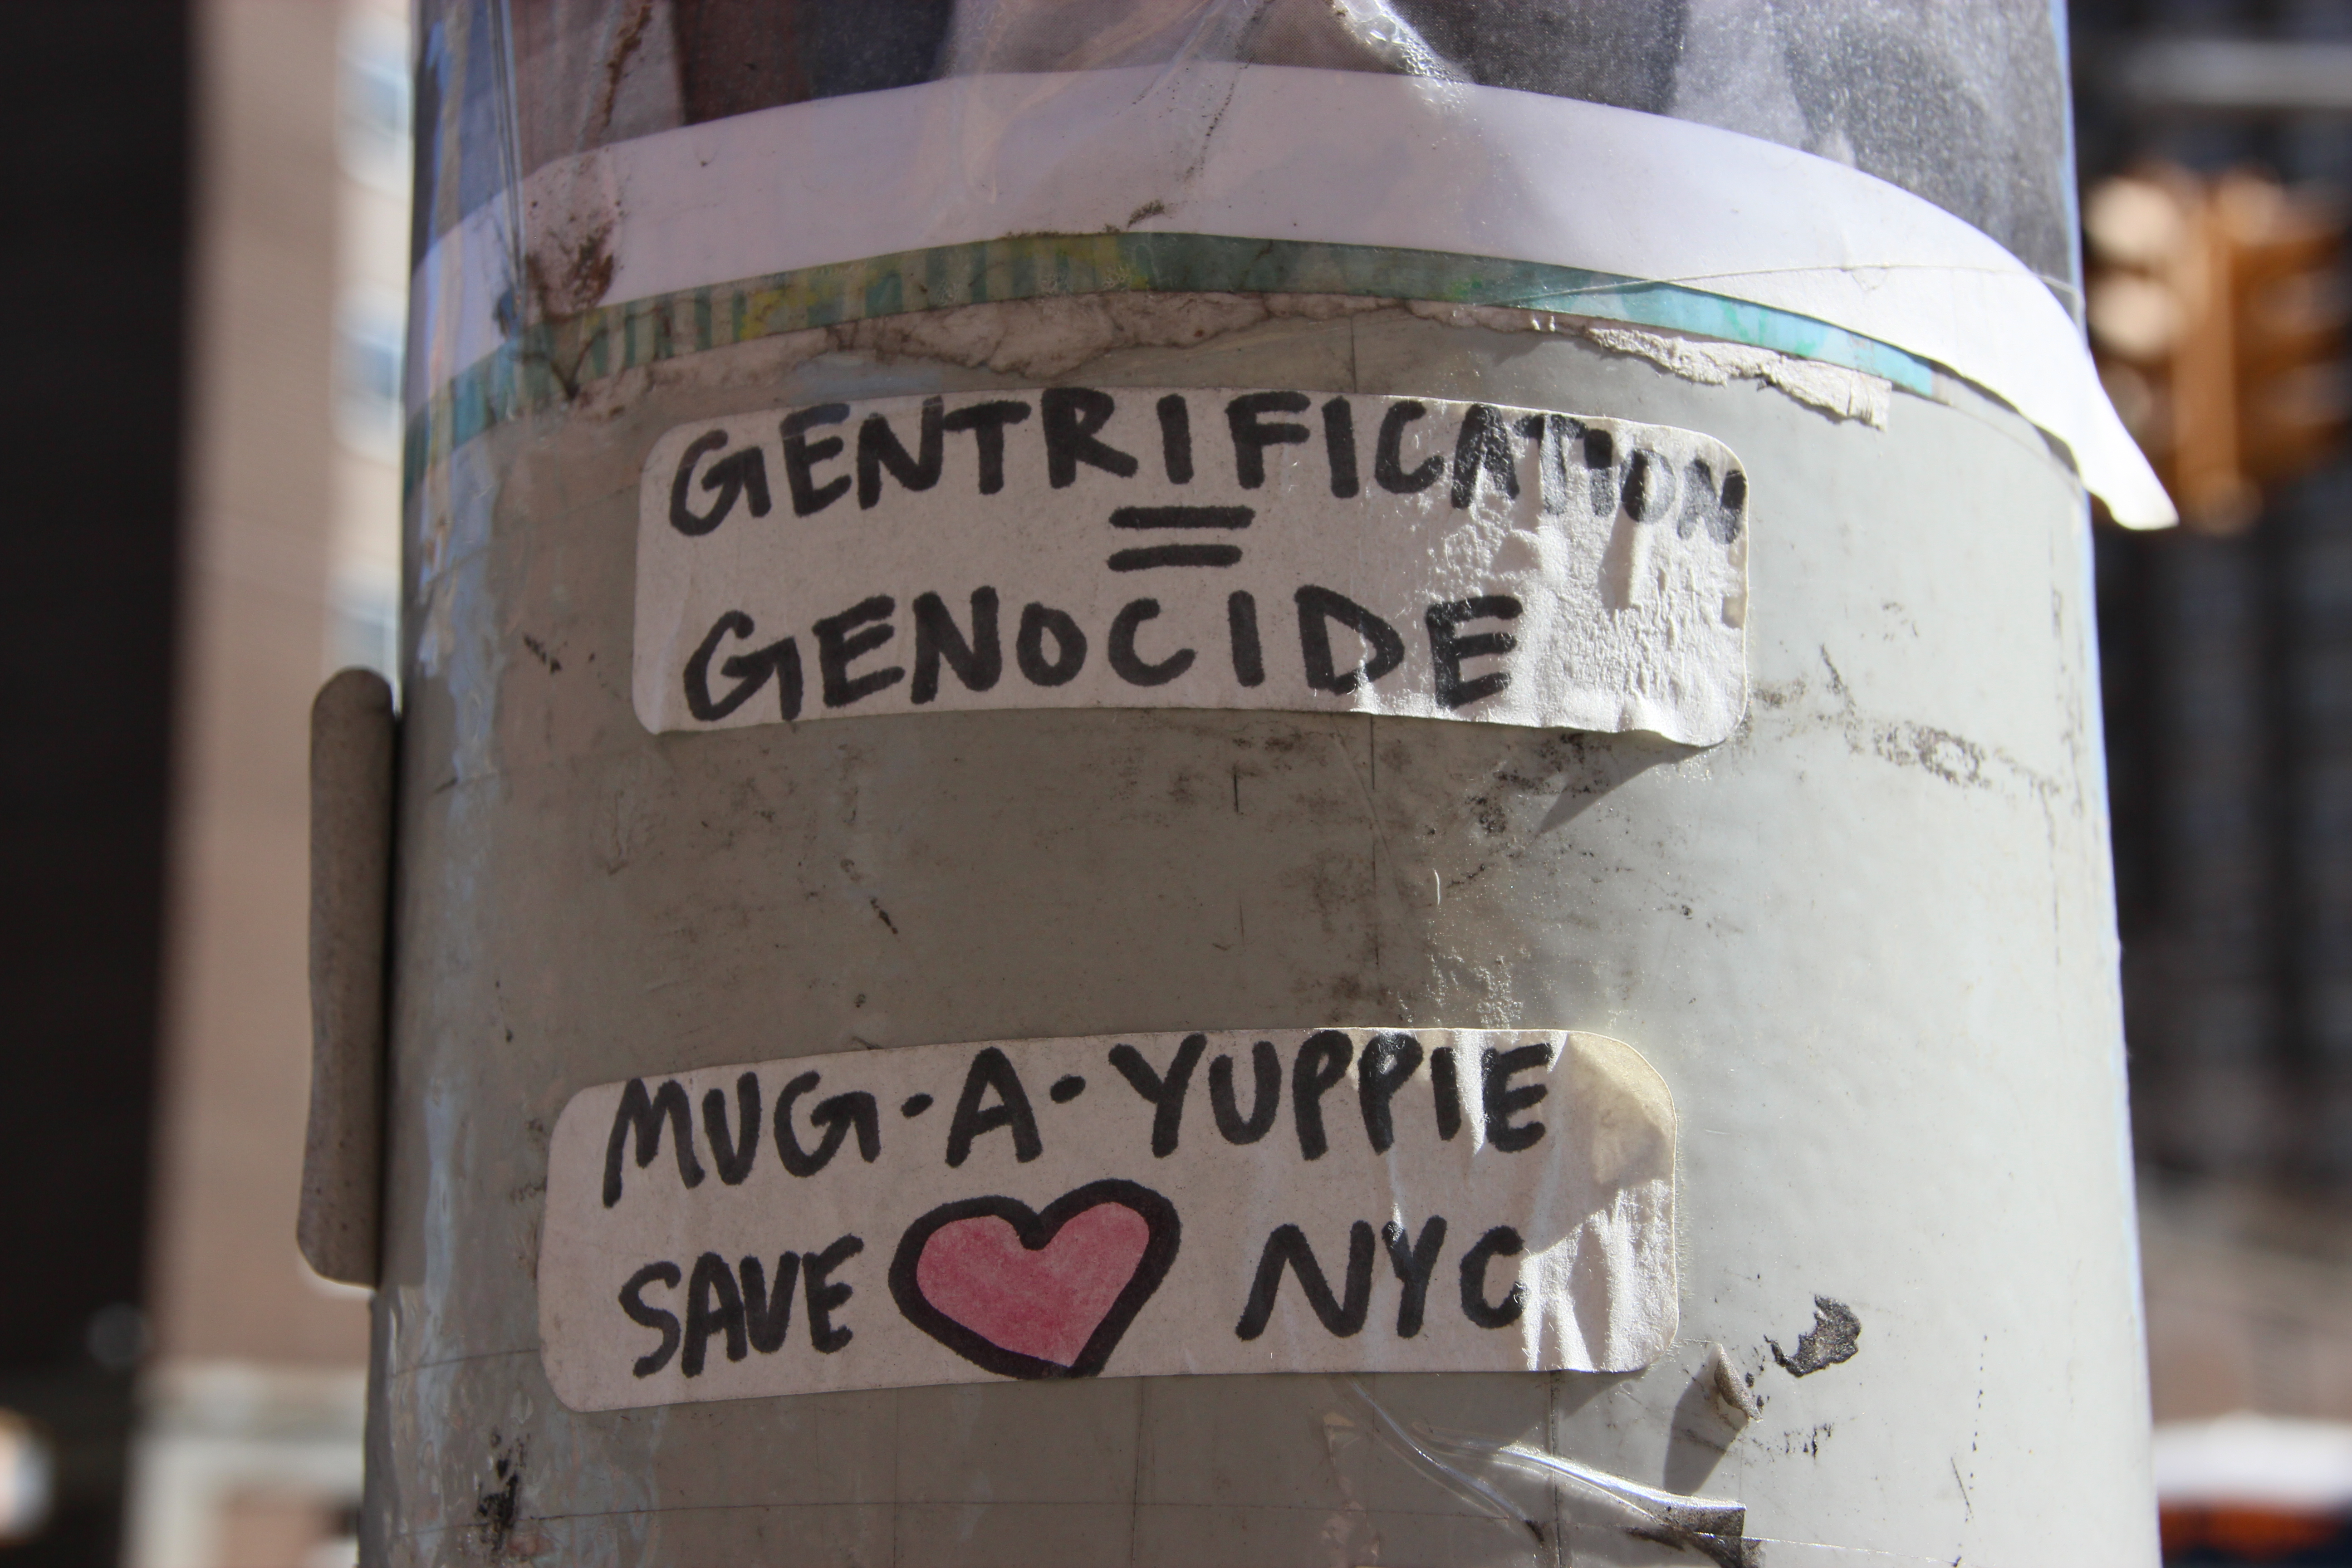 GENTRIFICATION
=
GENOCIDE
MUG-A-YUPPIE
SAVE NYC